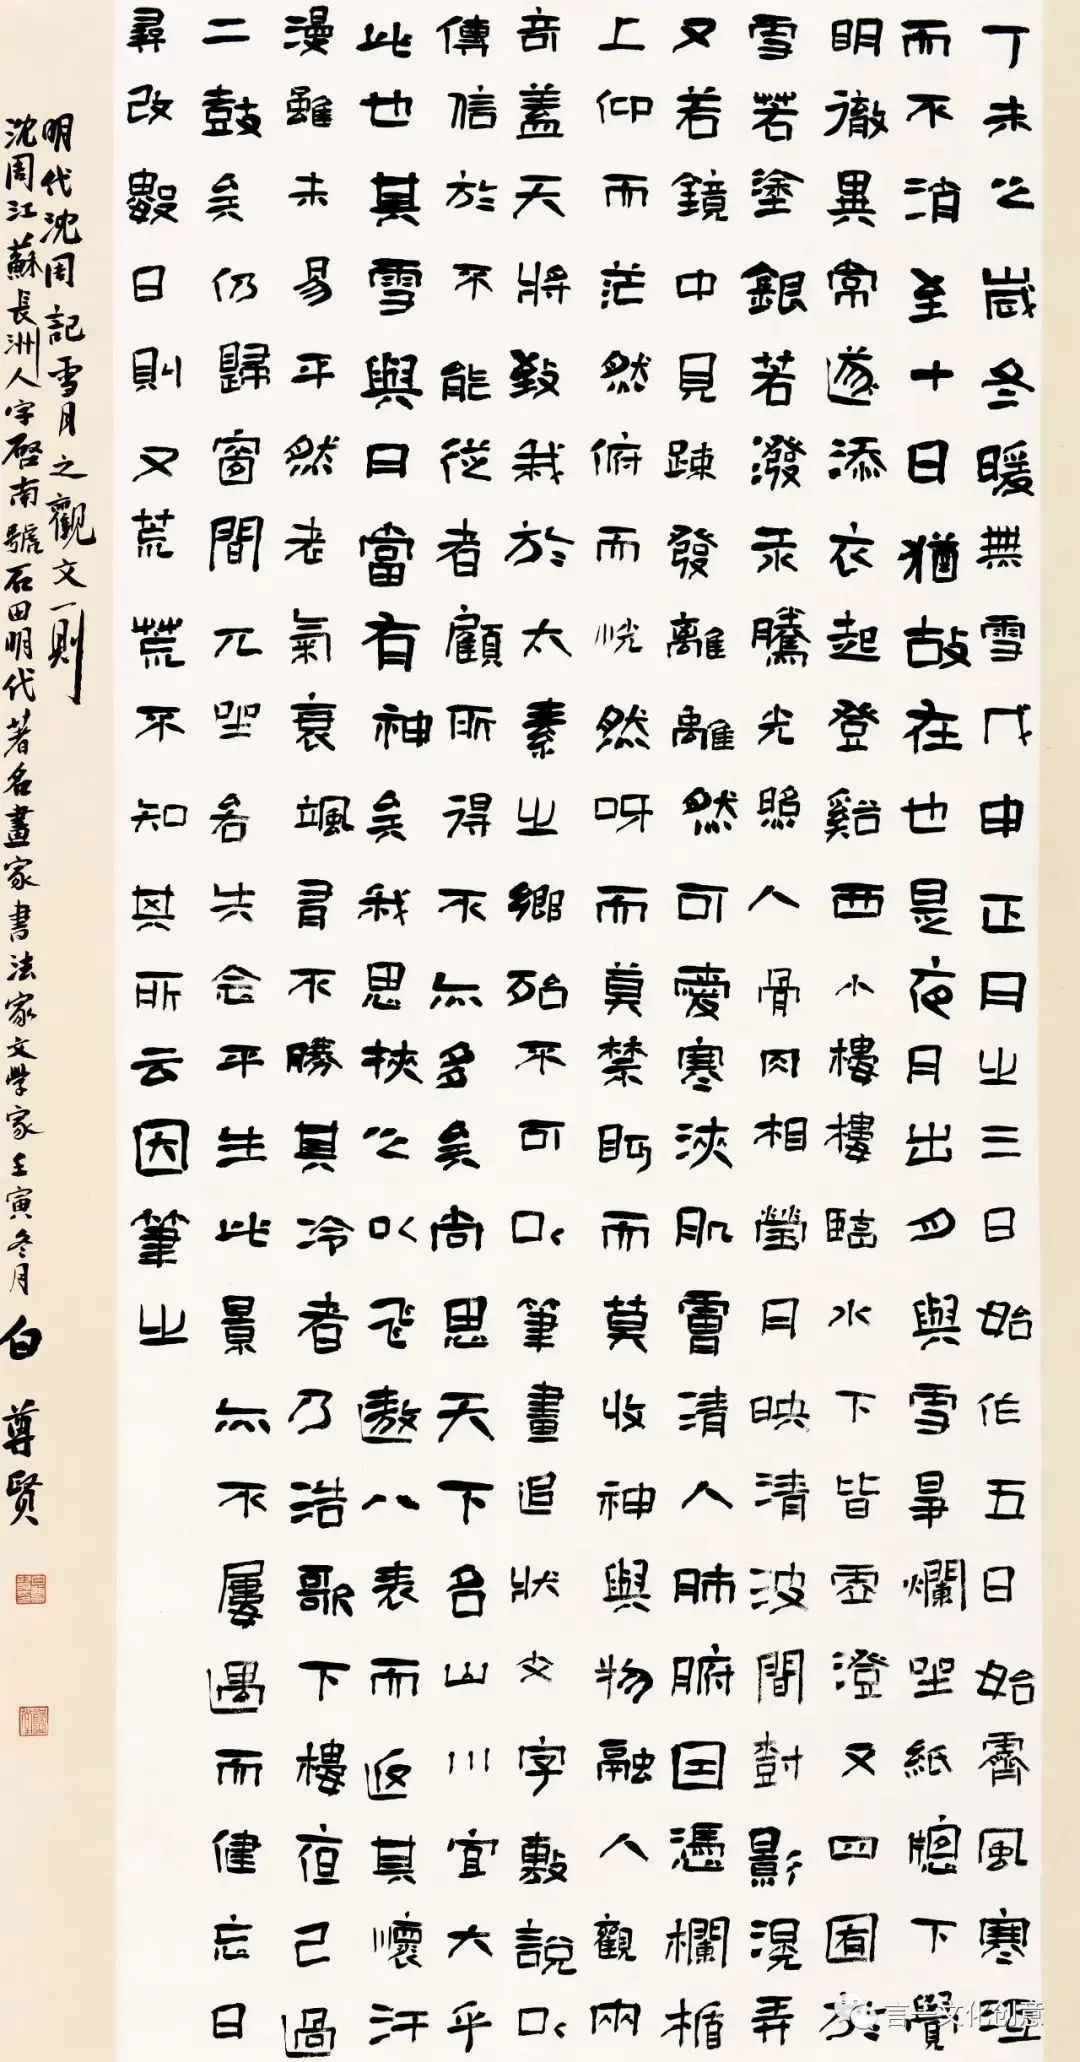 丁未之歲冬暖無雪戊申正月之三日始作五日始霽風寒沍
而不消至十日猶故在也是夜月出月與雪爭爛坐紙窗下覺
明徹異常遂添衣起登谿西小樓樓臨水下皆虛澄又四囿於
雪若塗銀若潑汞騰光照人骨肉相瑩月映清波間樹影滉弄
又若鏡中見疎發離離然可愛寒浹肌膚清人肺腑因憑欄楯
上仰而茫然俯而恍然呀而莫禁眄而莫收神與物融人觀兩
奇蓋天將致我於太素之鄉殆不可以筆畫追狀文字敷說以
傳信於不能從者顧所得不亦多矣尚思天下名山川宜大乎
此也其雪與月當有神矣我思挾之以飛遨八表而返其懷汗
漫雖未易平然老氣衰颯有不勝其冷者乃浩歌下樓夜已過
二鼓矣仍歸窗間兀坐若失念平生此景亦不屢遇而健忘日
尋改數日則又荒荒不知其所云因筆之
明代沈周記雪月之觀文一則
沈周江蘇長洲人字啓南號石田明代著名畫家書法家文學家壬寅冬月白尊賢
言兰文化创意